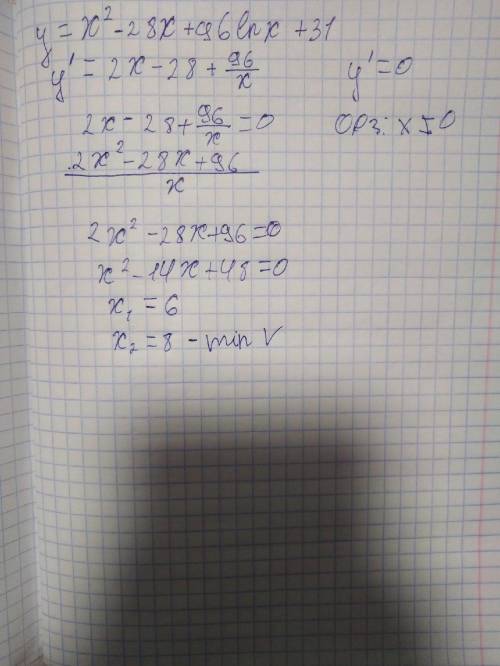 y = x² - 28x + 96 ln x + 31
y' = 2x - 28 + 96/x y' = 0
2x - 28 + 96/x = 0 ОРЗ: x ≠ 0
2x² - 28x + 96 / x
2x² - 28x + 96 = 0
x² - 14x + 48 = 0
x₁ = 6
x₂ = 8 - min V